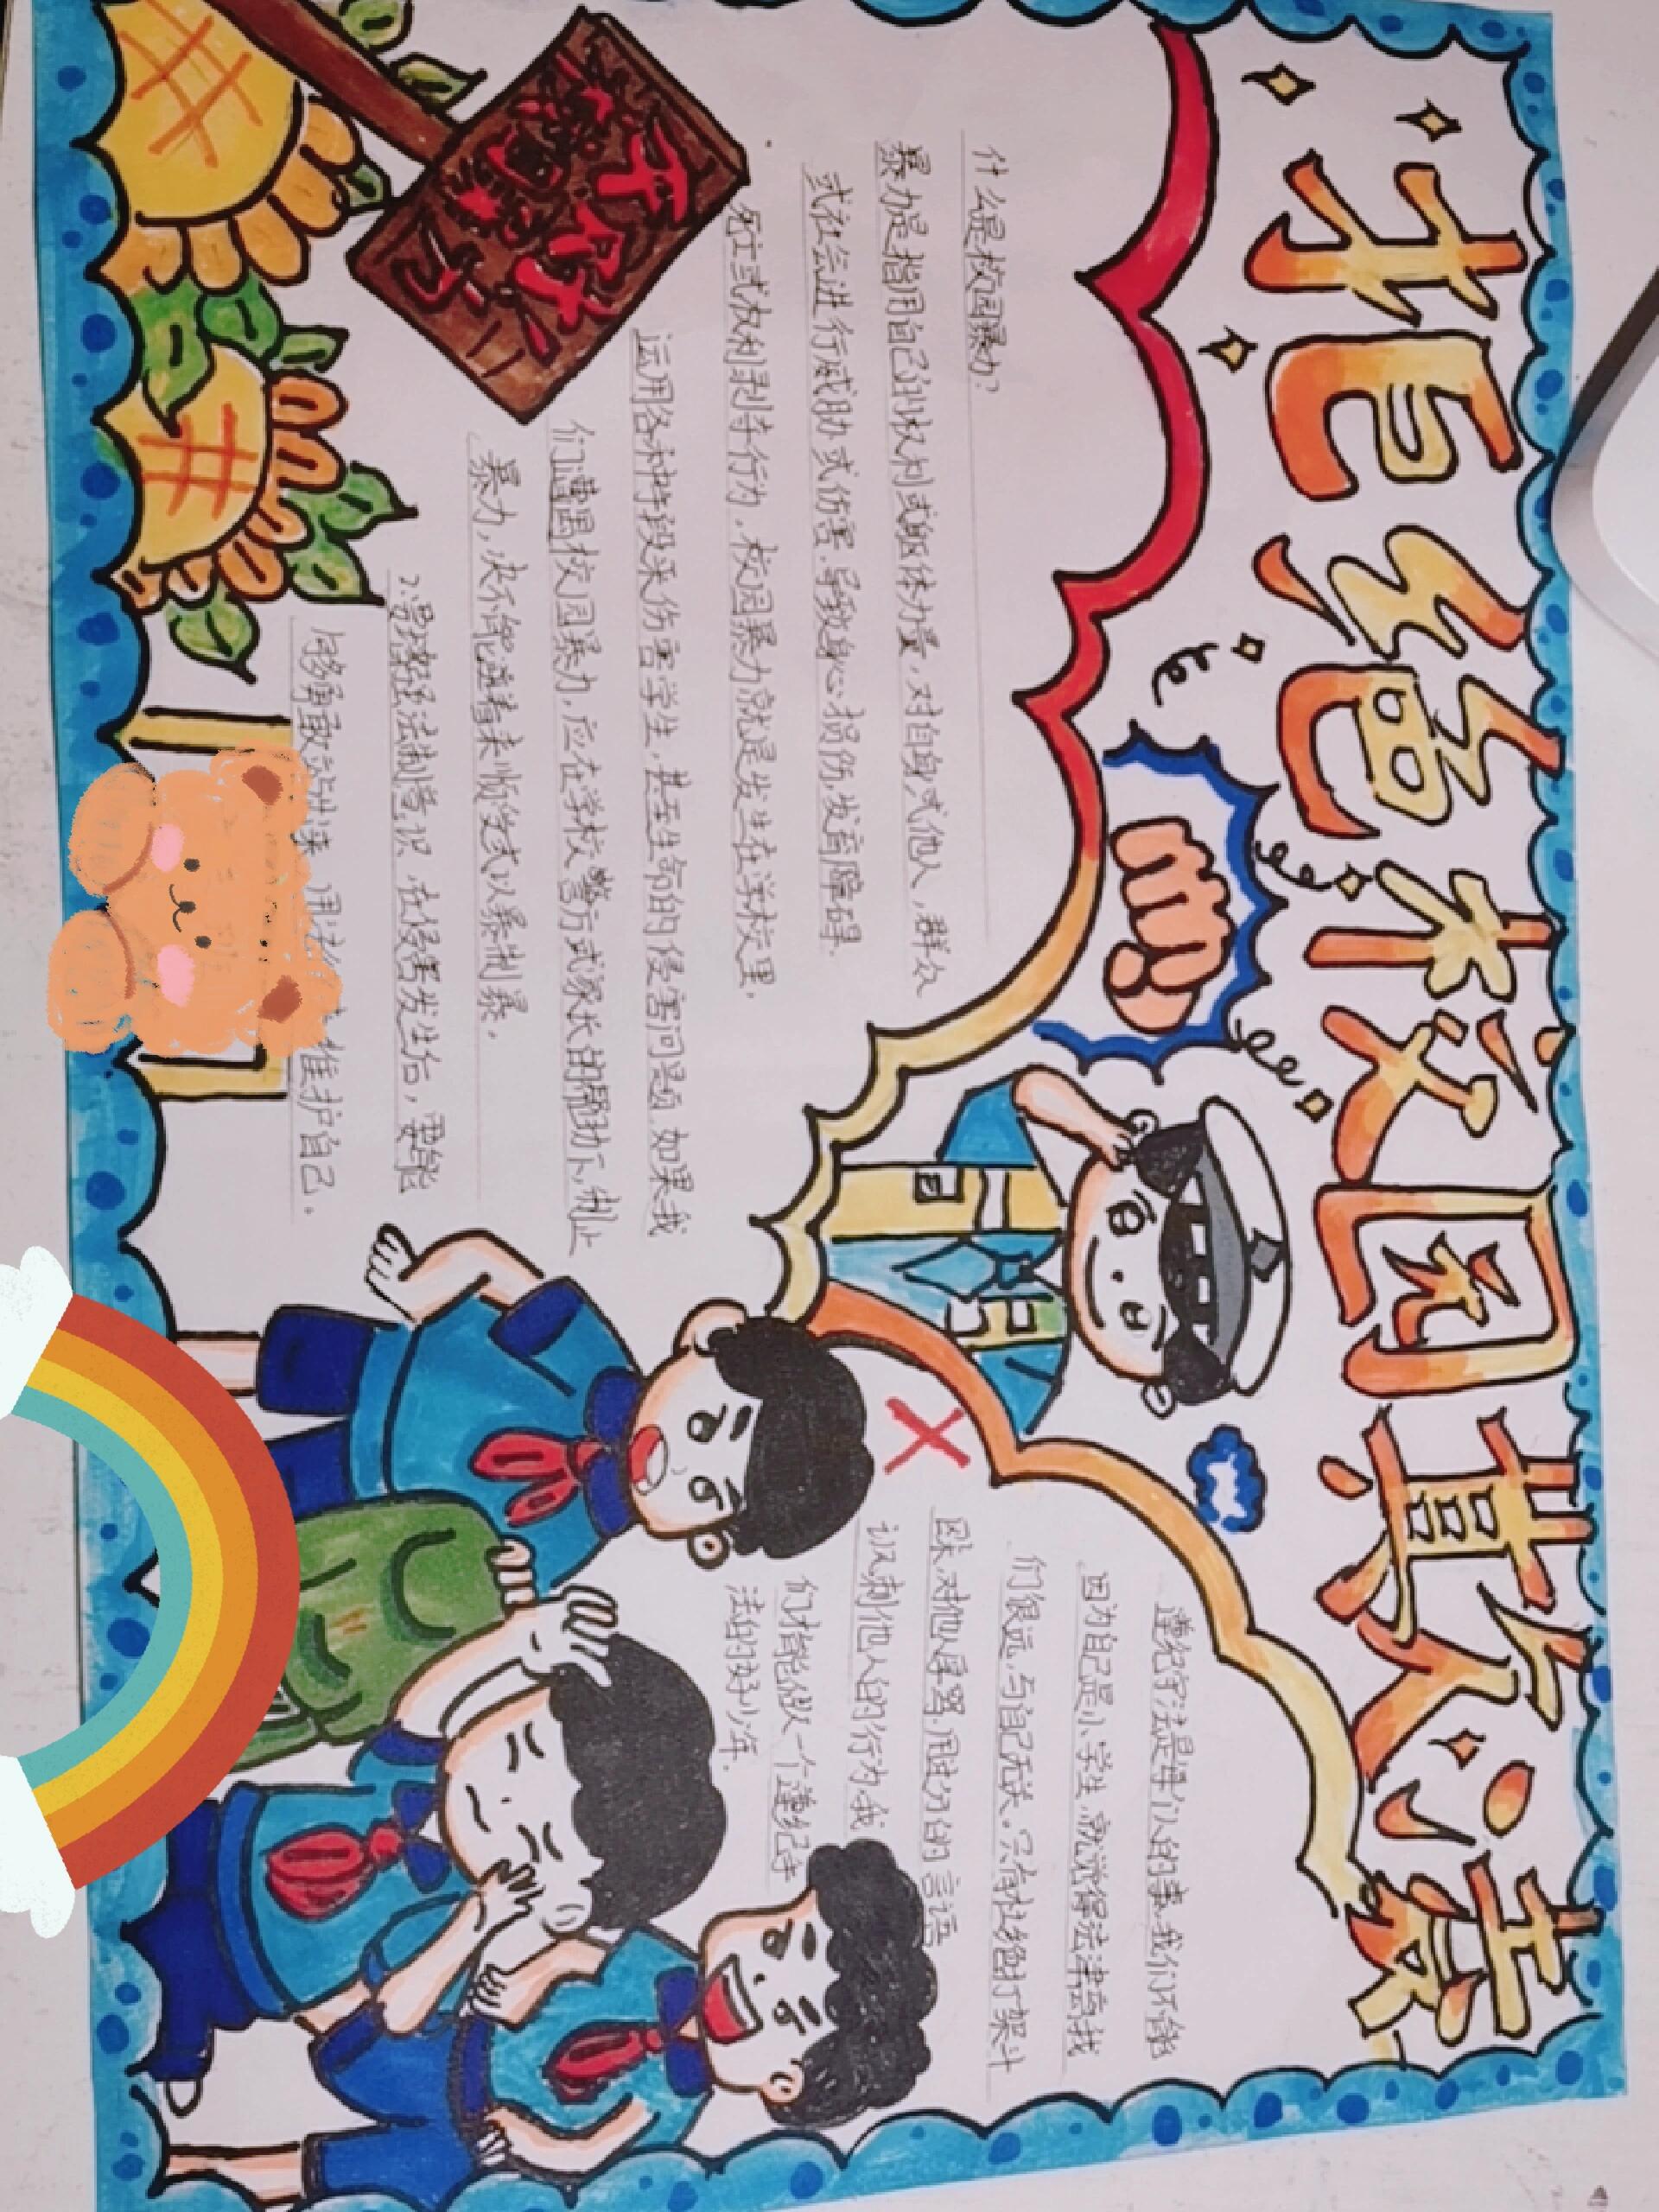 拒绝校园其欠凌
什么是校园暴力?
暴力是指用自己的权利或躯体力量,对自身或他人,群众
或社会进行威胁或伤害.导致身心损伤,发育障碍.
死亡或权利剥夺行为.校园暴力就是发生在学校里,
运用各种手段来伤害学生,甚至生命的侵害问题.如果我
们遭遇校园暴力,应在学校警方或家长的帮助下,制止
暴力,决不能逆着来顺受或以暴制暴.
2.要增强法制意识,在侵害发生后,要能
够勇敢站出来 用法 维护自己.
遵纪守法是每们人的事.我们不能
因为自己是小学生,就觉得法津离我
们很远,与自己无关。只有杜绝打架斗
殴,对他人辱骂.用过分的言语
讽刺他人的行为.我
们才能做一个遵纪守
法的好少年.